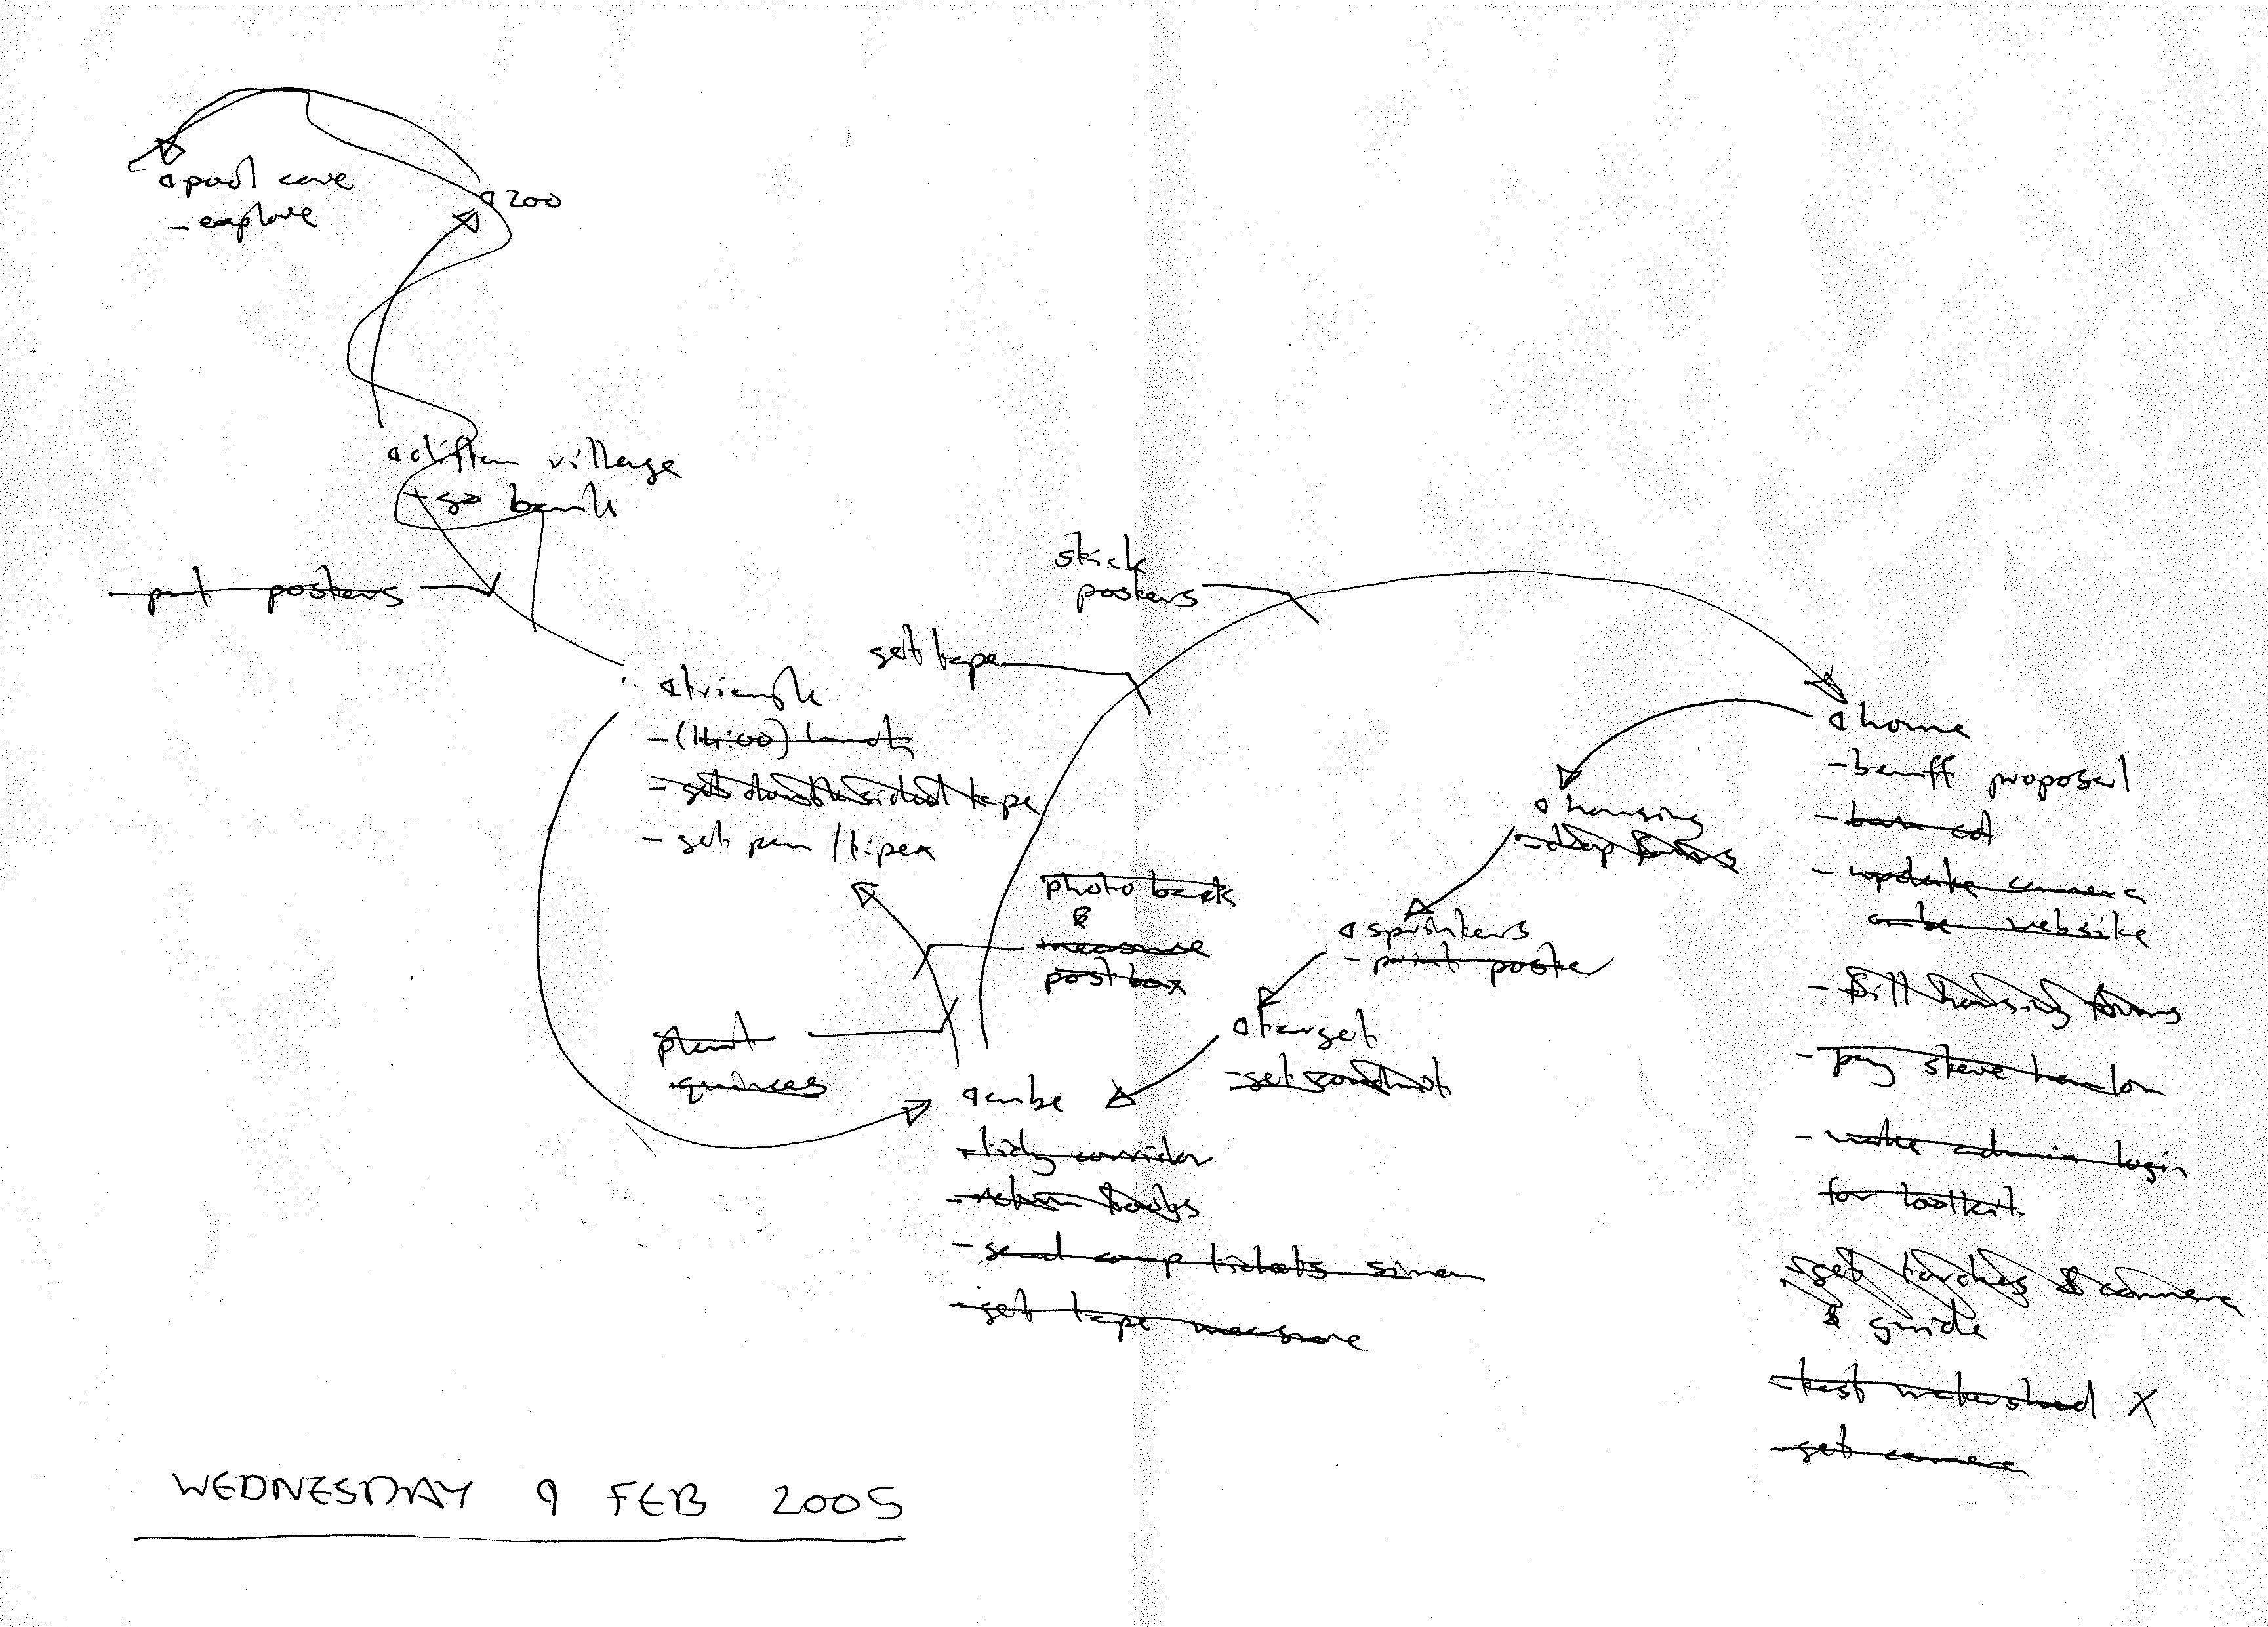 pool cave
- explore
zoo
clifton village
- go bank
- put posters
stick
posters
get tape
triangle
- (14:00) lunch
- get double sided tape
- get pen / tipex
photo back
&
measure
post box
plant
quinces
cube
- tidy corridor
- return books
- send comp tickets simon
- get tape measure
target
- get
sprinters
- print poster
housing
- drop forms
home
- banff proposal
- burn cd
- update camera
cube website
- fill housing forms
- pay steve
- make admin login
for toolkit
- get torches & camera
& guide
- test watershed X
- get camera
WEDNESDAY 9 FEB 2005